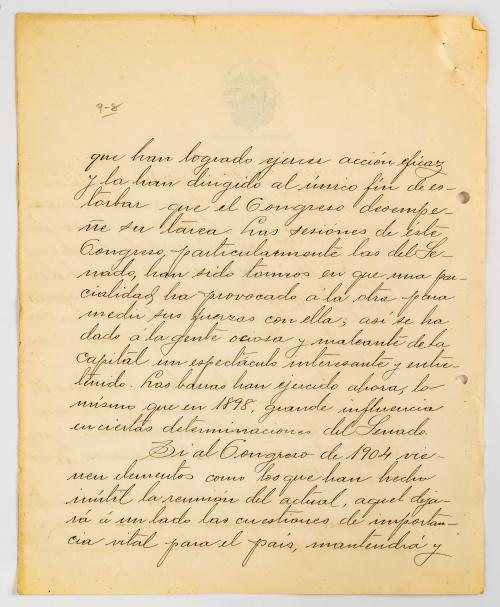 9-8
que han logrado ejercer acción eficaz
y la han dirigido al único fin de es-
torbar que el Congreso desempe-
ñe su tarea. Las sesiones de éste
Congreso, particularmente las del Se-
nado, han sido torneos en que una par-
cialidad ha provocado á la otra para
medir sus fuerzas con ella; así se ha
dado á la gente ociosa y maleante de la
capital un espectáculo interesante y entre-
tenido. Las barras han ejercido ahora, lo
mismo que en 1898, grande influencia
en ciertas determinaciones del Senado.
Si al Congreso de 1904 vie-
nen elementos como los que han hecho
inútil la reunión del actual, aquel deja-
rá á un lado las cuestiones de importan-
cia vital para el país, mantendrá y